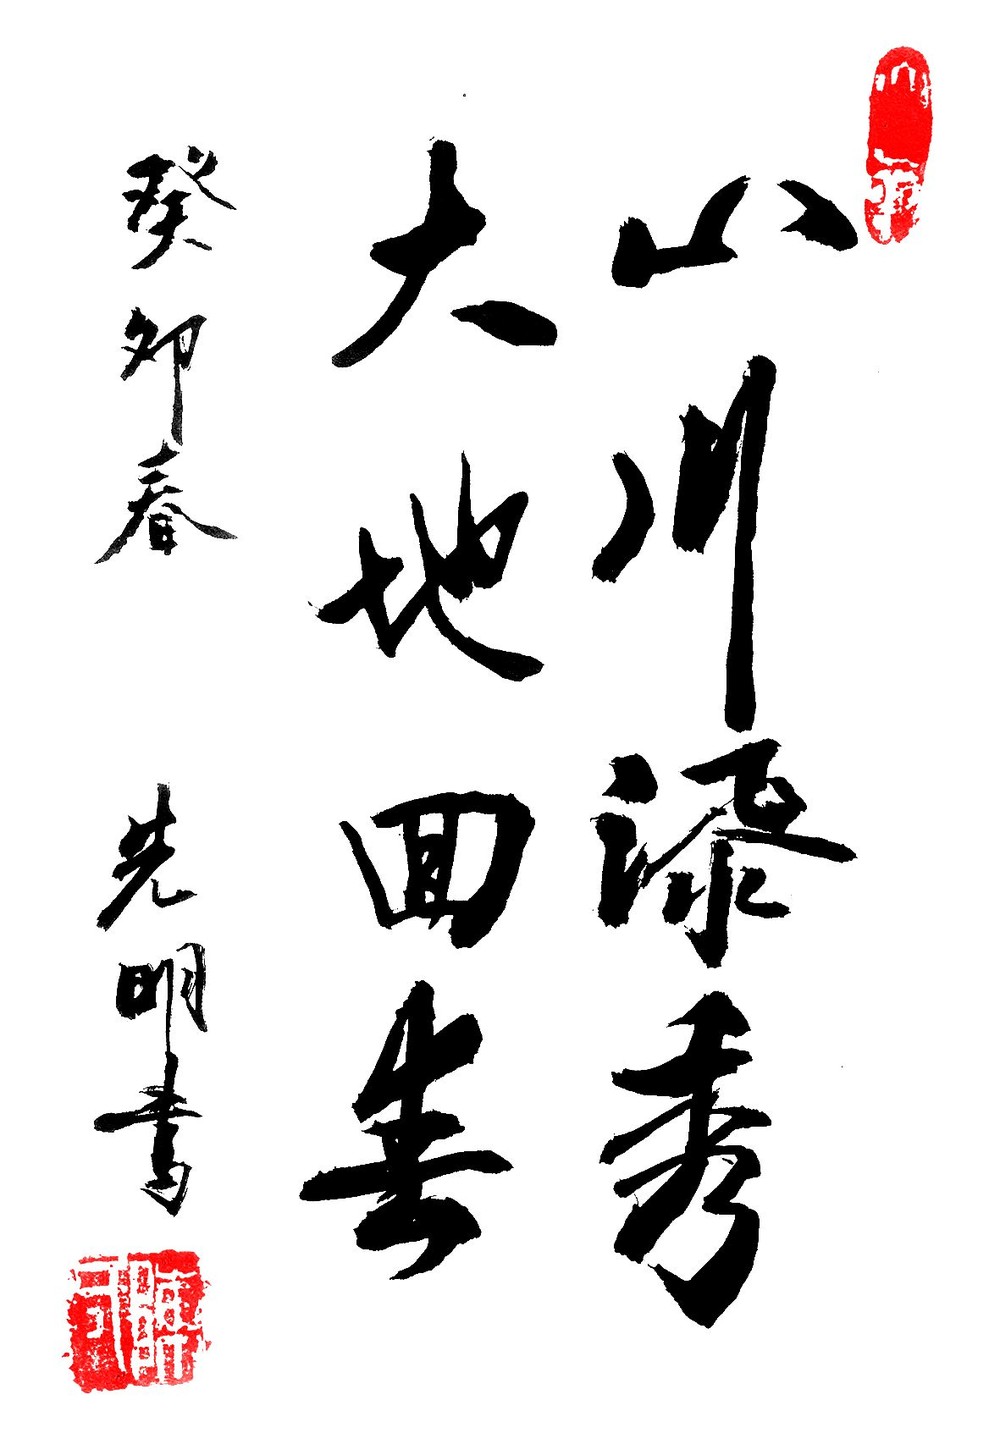 山川添秀
大地回春
癸卯春
先明書